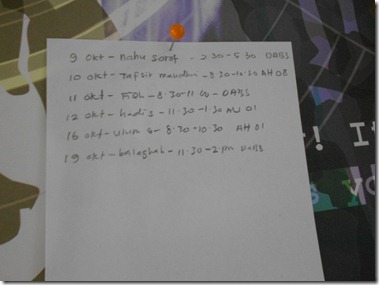 9 Okt - Nahu Sorof - 2.30-5.30 DABS
10 Okt - Tafsir Maudhui - 8.30-10.30 AH 08
11 Okt - Fiqh - 8.30-11 - DABS
12 Okt - hadis - 11.30-1.30 AU 01
16 Okt - Ulum - 8.30-10.30 AH 01
19 Okt - balaghah - 11.30-2 pm DABS
! It